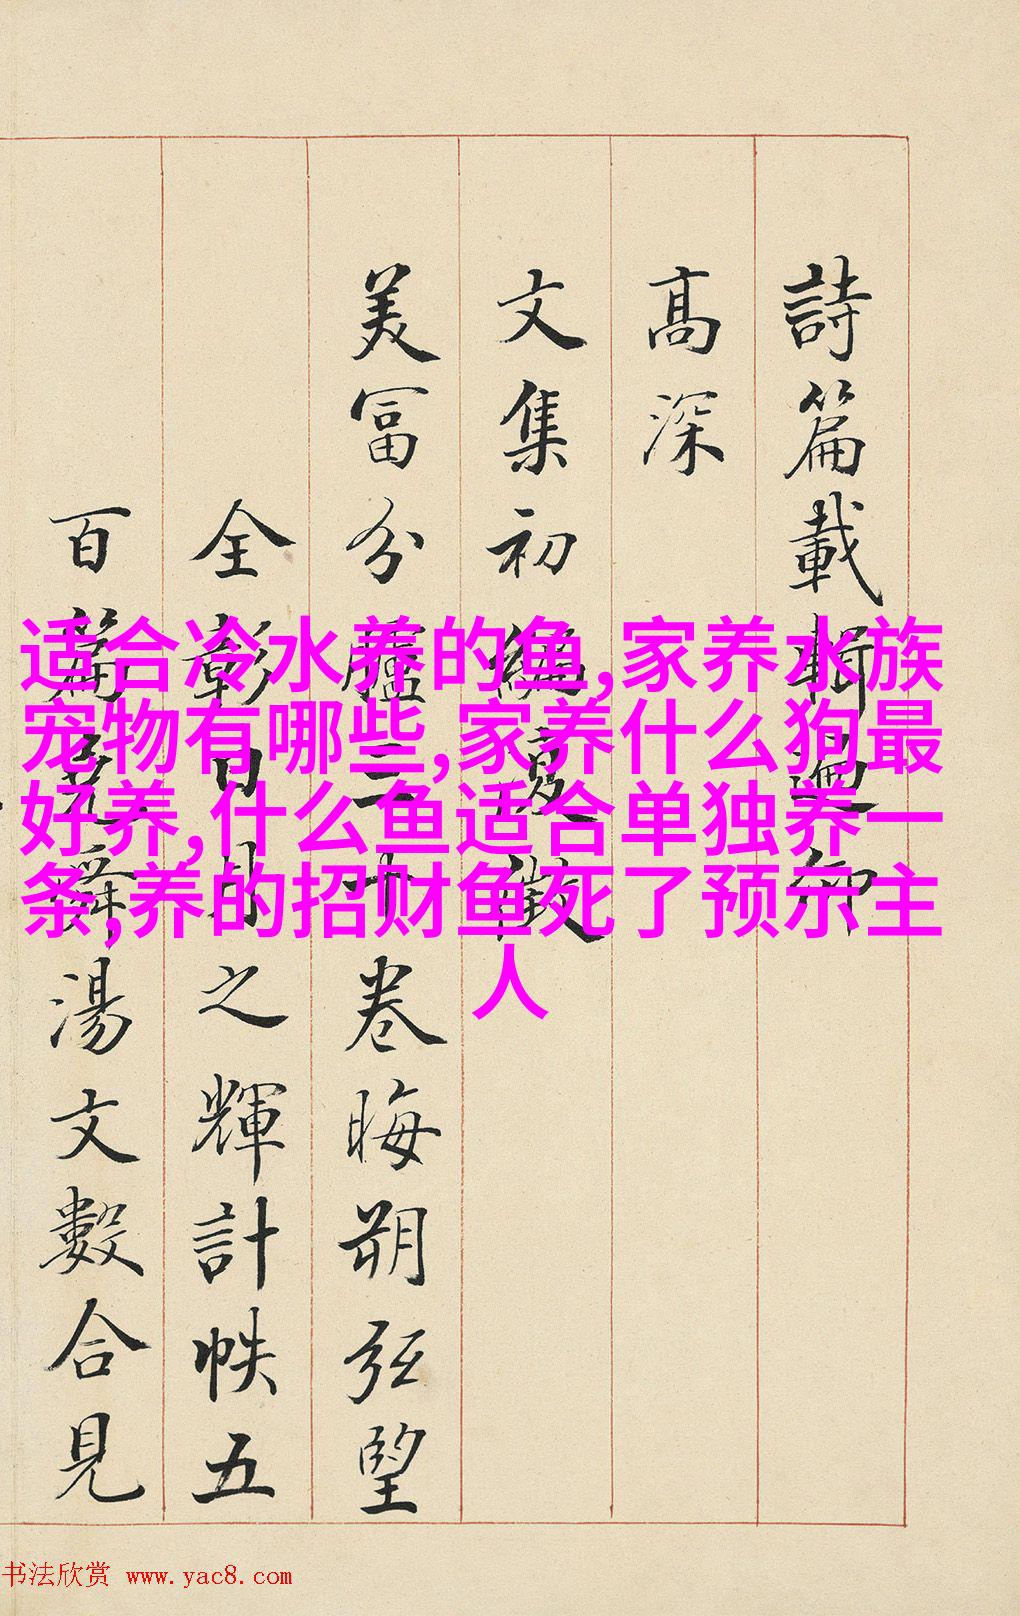 詩篇載賡迴卿
高深
文集初編夏徵
美富分臚三十卷晦朔弦望
全彰日月之輝計帙五
百篇堯舜湯文數合見
适合冷水养的鱼,家养水族
宠物有哪些,家养什么狗最
好养,什么鱼适合单独养一
条,养的招财鱼死了预示主
人
书法欣赏 www.yac8.com